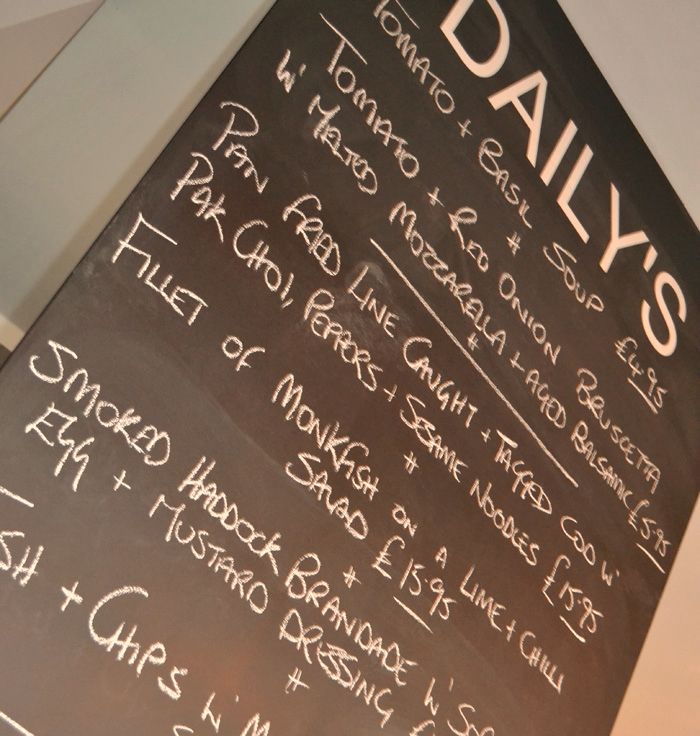 DAILY'S
TOMATO + BASIL SOUP £4.95
#
TOMATO + RED ONION BRUSCETTA
W' MELTED MOZZARELLA + AGED BALSAMIC £5.95
#
PAN FRIED LINE CAUGHT + TAGGED COD W'
PAK CHOI, PEPPERS + SESAME NOODLES £15.95
#
FILLET OF MONKFISH ON A LIME + CHILLI
SALAD £15.95
#
SMOKED HADDOCK BRANDADE W' SOF
EGG + MUSTARD DRESSING £
#
SH + CHIPS W' M